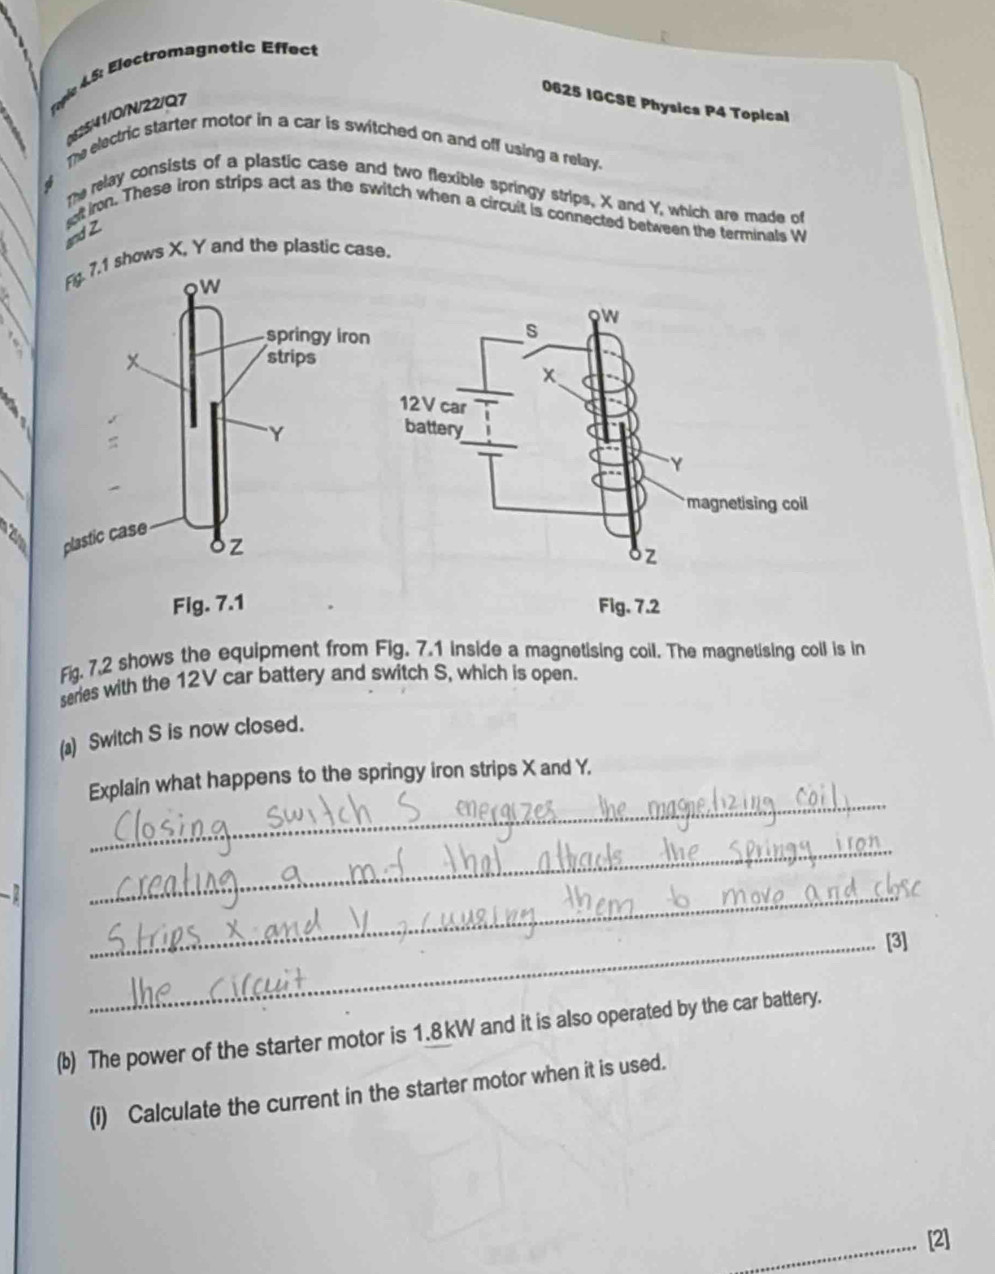 Topic 4.5: Electromagnetic Effect
0625 IGCSE Physics P4 Topical
0625/41/O/N/22/Q7
The electric starter motor in a car is switched on and off using a relay.
The relay consists of a plastic case and two flexible springy strips, X and Y, which are made of
soft iron. These iron strips act as the switch when a circuit is connected between the terminals W
and Z.
Fig. 7.1 shows X, Y and the plastic case.
W
springy iron
strips
X
Y
plastic case
Z
Fig. 7.1
W
S
X
12V car
battery
Y
magnetising coil
Z
Fig. 7.2
Fig. 7.2 shows the equipment from Fig. 7.1 inside a magnetising coil. The magnetising coil is in
series with the 12V car battery and switch S, which is open.
(a) Switch S is now closed.
Explain what happens to the springy iron strips X and Y.
Closing switch S energizes the magnetizing coil,
creating a m.f that attracts the springy iron
Strips X and Y, causing them to move and close
the circuit
[3]
(b) The power of the starter motor is 1.8kW and it is also operated by the car battery.
(i) Calculate the current in the starter motor when it is used.
[2]